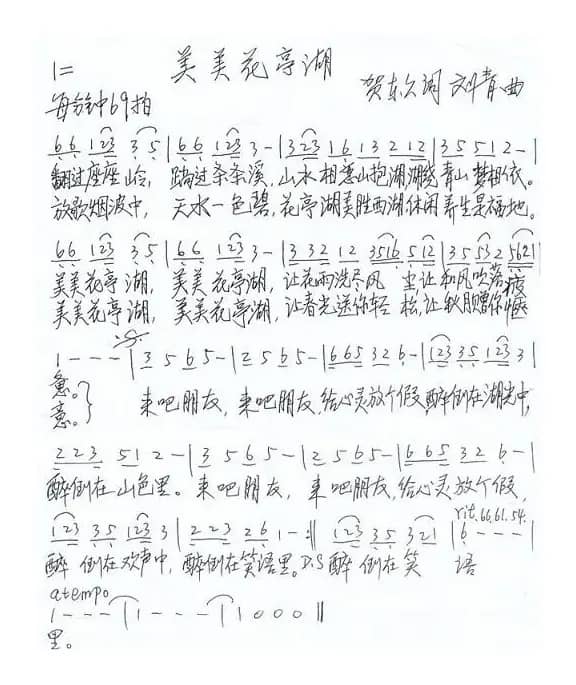 美美花亭湖
1=
贺东久词 刘青曲
每分钟69拍
6 6 1 2 3 3 5 | 6 6 1 2 3 3 - | 3 2 3 1 6 1 3 2 1 2 | 3 5 5 1 2 - |
翻过座座山岭, 踏过条条溪,山水相恋山抱湖湖绕青山梦相依。
放歌烟波中, 天水一色碧,花亭湖美胜西湖休闲养生是福地。
6 6 1 2 3 3 5 | 6 6 1 2 3 3 - | 3 3 2 1 2 3 5 1 6 5 1 2 | 3 5 5 3 2 5 6 2 1 |
美美花亭湖, 美美花亭湖,让花雨洗尽风 尘让和风吹落疲
美美花亭湖, 美美花亭湖,让春光送你轻 松,让秋月赠你惬
1 - - - | 3 5 6 5 - | 2 5 6 5 - | 6 6 5 3 2 6 - | 1 2 3 3 5 1 2 3 3 |
惫。} 来吧朋友, 来吧朋友,给心灵放个假,醉倒在湖光中,
意。
2 2 3 5 1 2 - | 3 5 6 5 - | 2 5 6 5 - | 6 6 5 3 2 6 - |
醉倒在山色里。来吧朋友, 来吧朋友,给心灵放个假,
rit. 66. 61. 54.
1 2 3 3 5 1 2 3 3 | 2 2 3 2 6 1 - :‖ 1 2 3 3 5 3 2 1 | 6 - - - |
醉 倒在欢声中, 醉倒在笑语里。D.S 醉 倒在笑 语
a tempo
1 - - - | 1 - - - | 1 0 0 0 ‖
里。